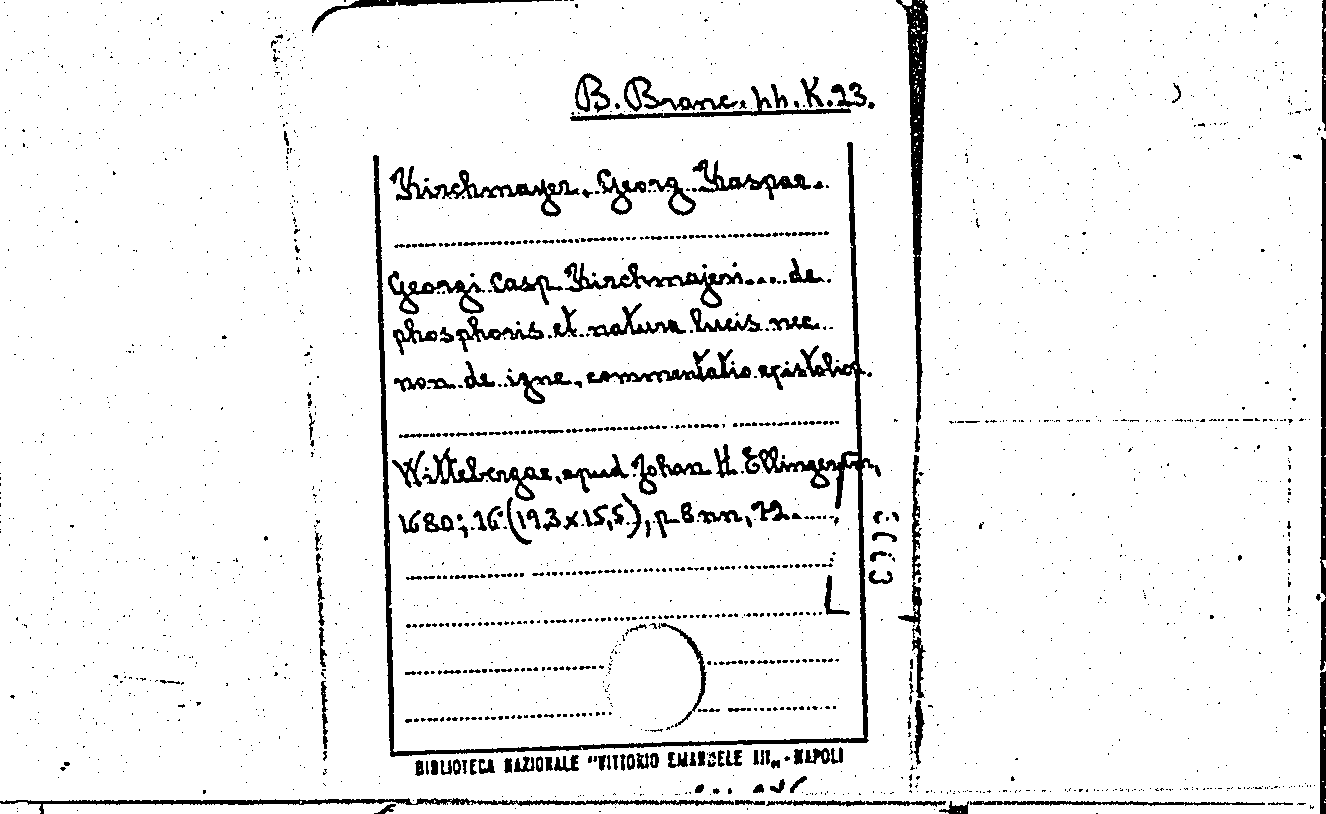 B. Branc. hh. K. 23.
Kirchmayer, Georg Kaspar.
Georgi Casp Kirchmajeri.... de
phosphoris et natura lucis nec
non de igne, commentatio epistolica.
Wittebergae, apud Johan H. Ellingerum,
1680; 16 (19,3 x 15,5), p 8 nn, 72.
BIBLIOTECA NAZIONALE "VITTORIO EMANUELE III„ - NAPOLI